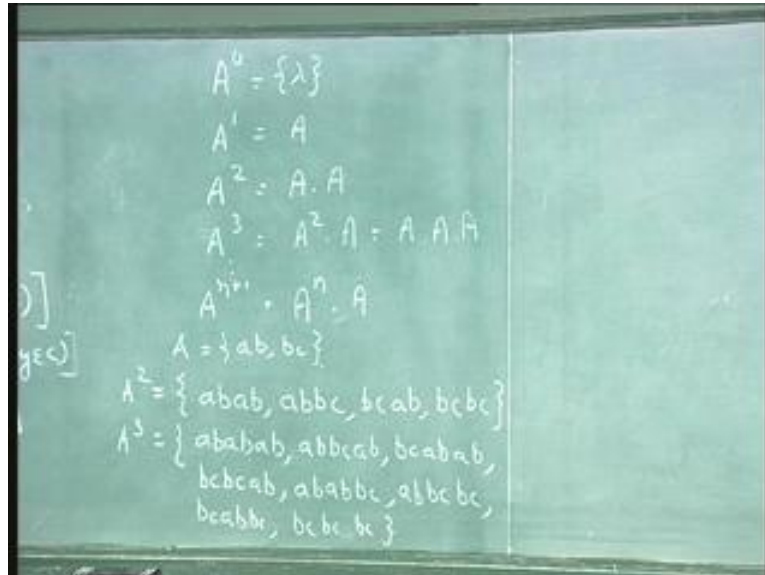 A⁰ = {λ}
A¹ = A
A² = A . A
A³ = A² . A = A . A . A
Aⁿ⁺¹ = Aⁿ . A
)]
A = {ab, bc}
yεc)]
A² = { abab, abbc, bcab, bcbc}
A³ = { ababab, abbcab, bcabab,
bcbcab, ababbc, abbcbc,
bcabbc, bcbcbc}